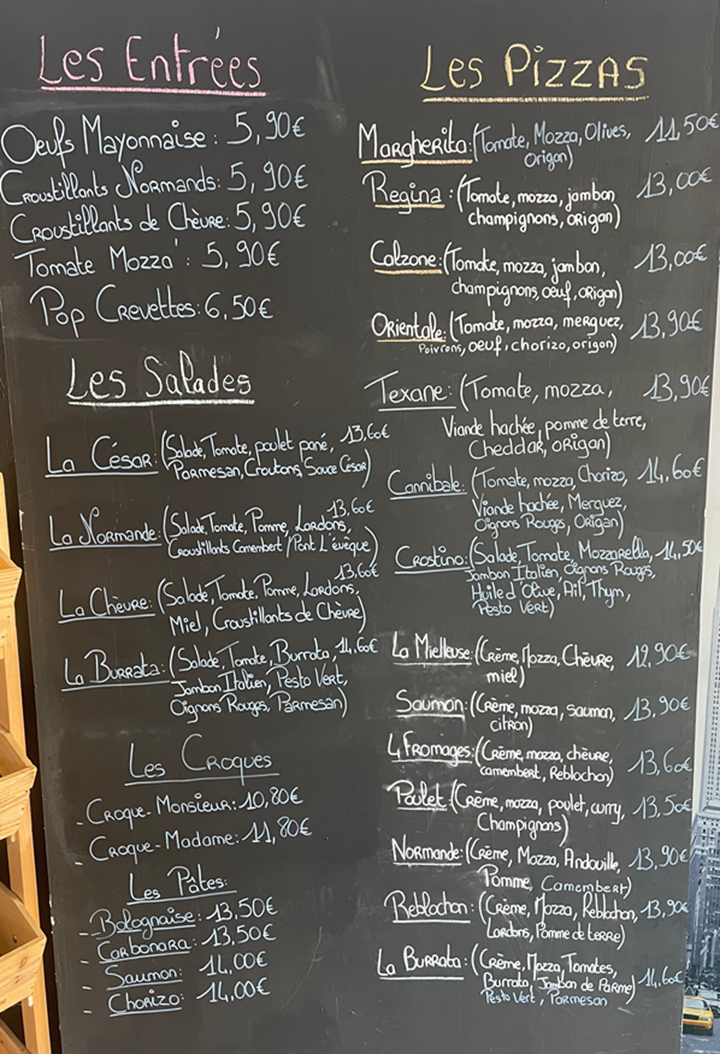 Les Entrées
Oeufs Mayonnaise : 5,90€
Croustillants Normands: 5,90€
Croustillants de Chèvre: 5,90€
Tomate Mozza' : 5,90€
Pop Crevettes: 6,50€
Les Salades
La César: (Salade, Tomate, poulet pané, 13,60€
Parmesan, Croutons, Sauce César)
La Normande: (Salade, Tomate, Pomme, Lardons, 13,60€
Croustillants Camembert / Pont L'évêque)
La Chèvre: (Salade, Tomate, Pomme, Lardons, 13,60€
Miel, Croustillants de Chèvre)
La Burrata: (Salade, Tomate, Burrata, 14,60€
Jambon Italien, Pesto Vert,
Oignons Rouges, Parmesan)
Les Croques
- Croque-Monsieur: 10,80€
- Croque-Madame: 11,80€
Les Pâtes:
- Bolognaise: 13,50€
- Carbonara: 13,50€
- Saumon: 14,00€
- Chorizo: 14,00€
Les Pizzas
Margherita: (Tomate, Mozza, Olives, 11,50€
origan)
Regina : (Tomate, mozza, jambon, 13,00€
champignons, origan)
Calzone: (Tomate, mozza, jambon, 13,00€
champignons, oeuf, origan)
Orientale: (Tomate, mozza, merguez, 13,90€
Poivrons, oeuf, chorizo, origan)
Texane: (Tomate, mozza, 13,90€
Viande hachée, pomme de terre,
Cheddar, origan)
Cannibale: (Tomate, mozza, Chorizo, 14,60€
Viande hachée, Merguez,
Oignons Rouges, Origan)
Crostino: (Salade, Tomate, Mozzarella, 14,50€
Jambon Italien, Oignons Rouges,
Huile d'Olive, Ail, Thym,
Pesto Vert)
La Mielleuse: (Crème, Mozza, Chèvre, 12,90€
miel)
Saumon: (Crème, mozza, saumon, 13,90€
citron)
4 Fromages: (Crème, mozza, chèvre, 13,60€
camembert, Reblochon)
Poulet: (Crème, mozza, poulet, curry, 13,50€
Champignons)
Normande: (Crème, Mozza, Andouille, 13,90€
Pomme, Camembert)
Reblochon: (Crème, Mozza, Reblochon, 13,90€
Lardons, Pomme de terre)
La Burrata: (Crème, Mozza, Tomates,
Burrata, Jambon de Parme) 14,60€
Pesto Vert, Parmesan